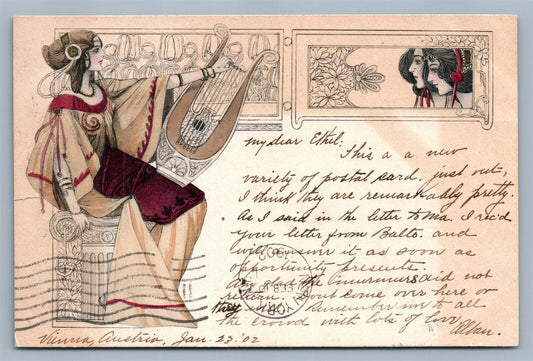 my dear Ethel:
This a a new
variety of postal card, just out,
I think they are remarkably pretty.
As I said in the letter to Ma I rec'd
your letter from Balto. and
will answer it as soon as
opportunity presents.
did not
come over here or
they Remember me to all
the crowd with lots of love
Vienna, Austria, Jan. 23. 02